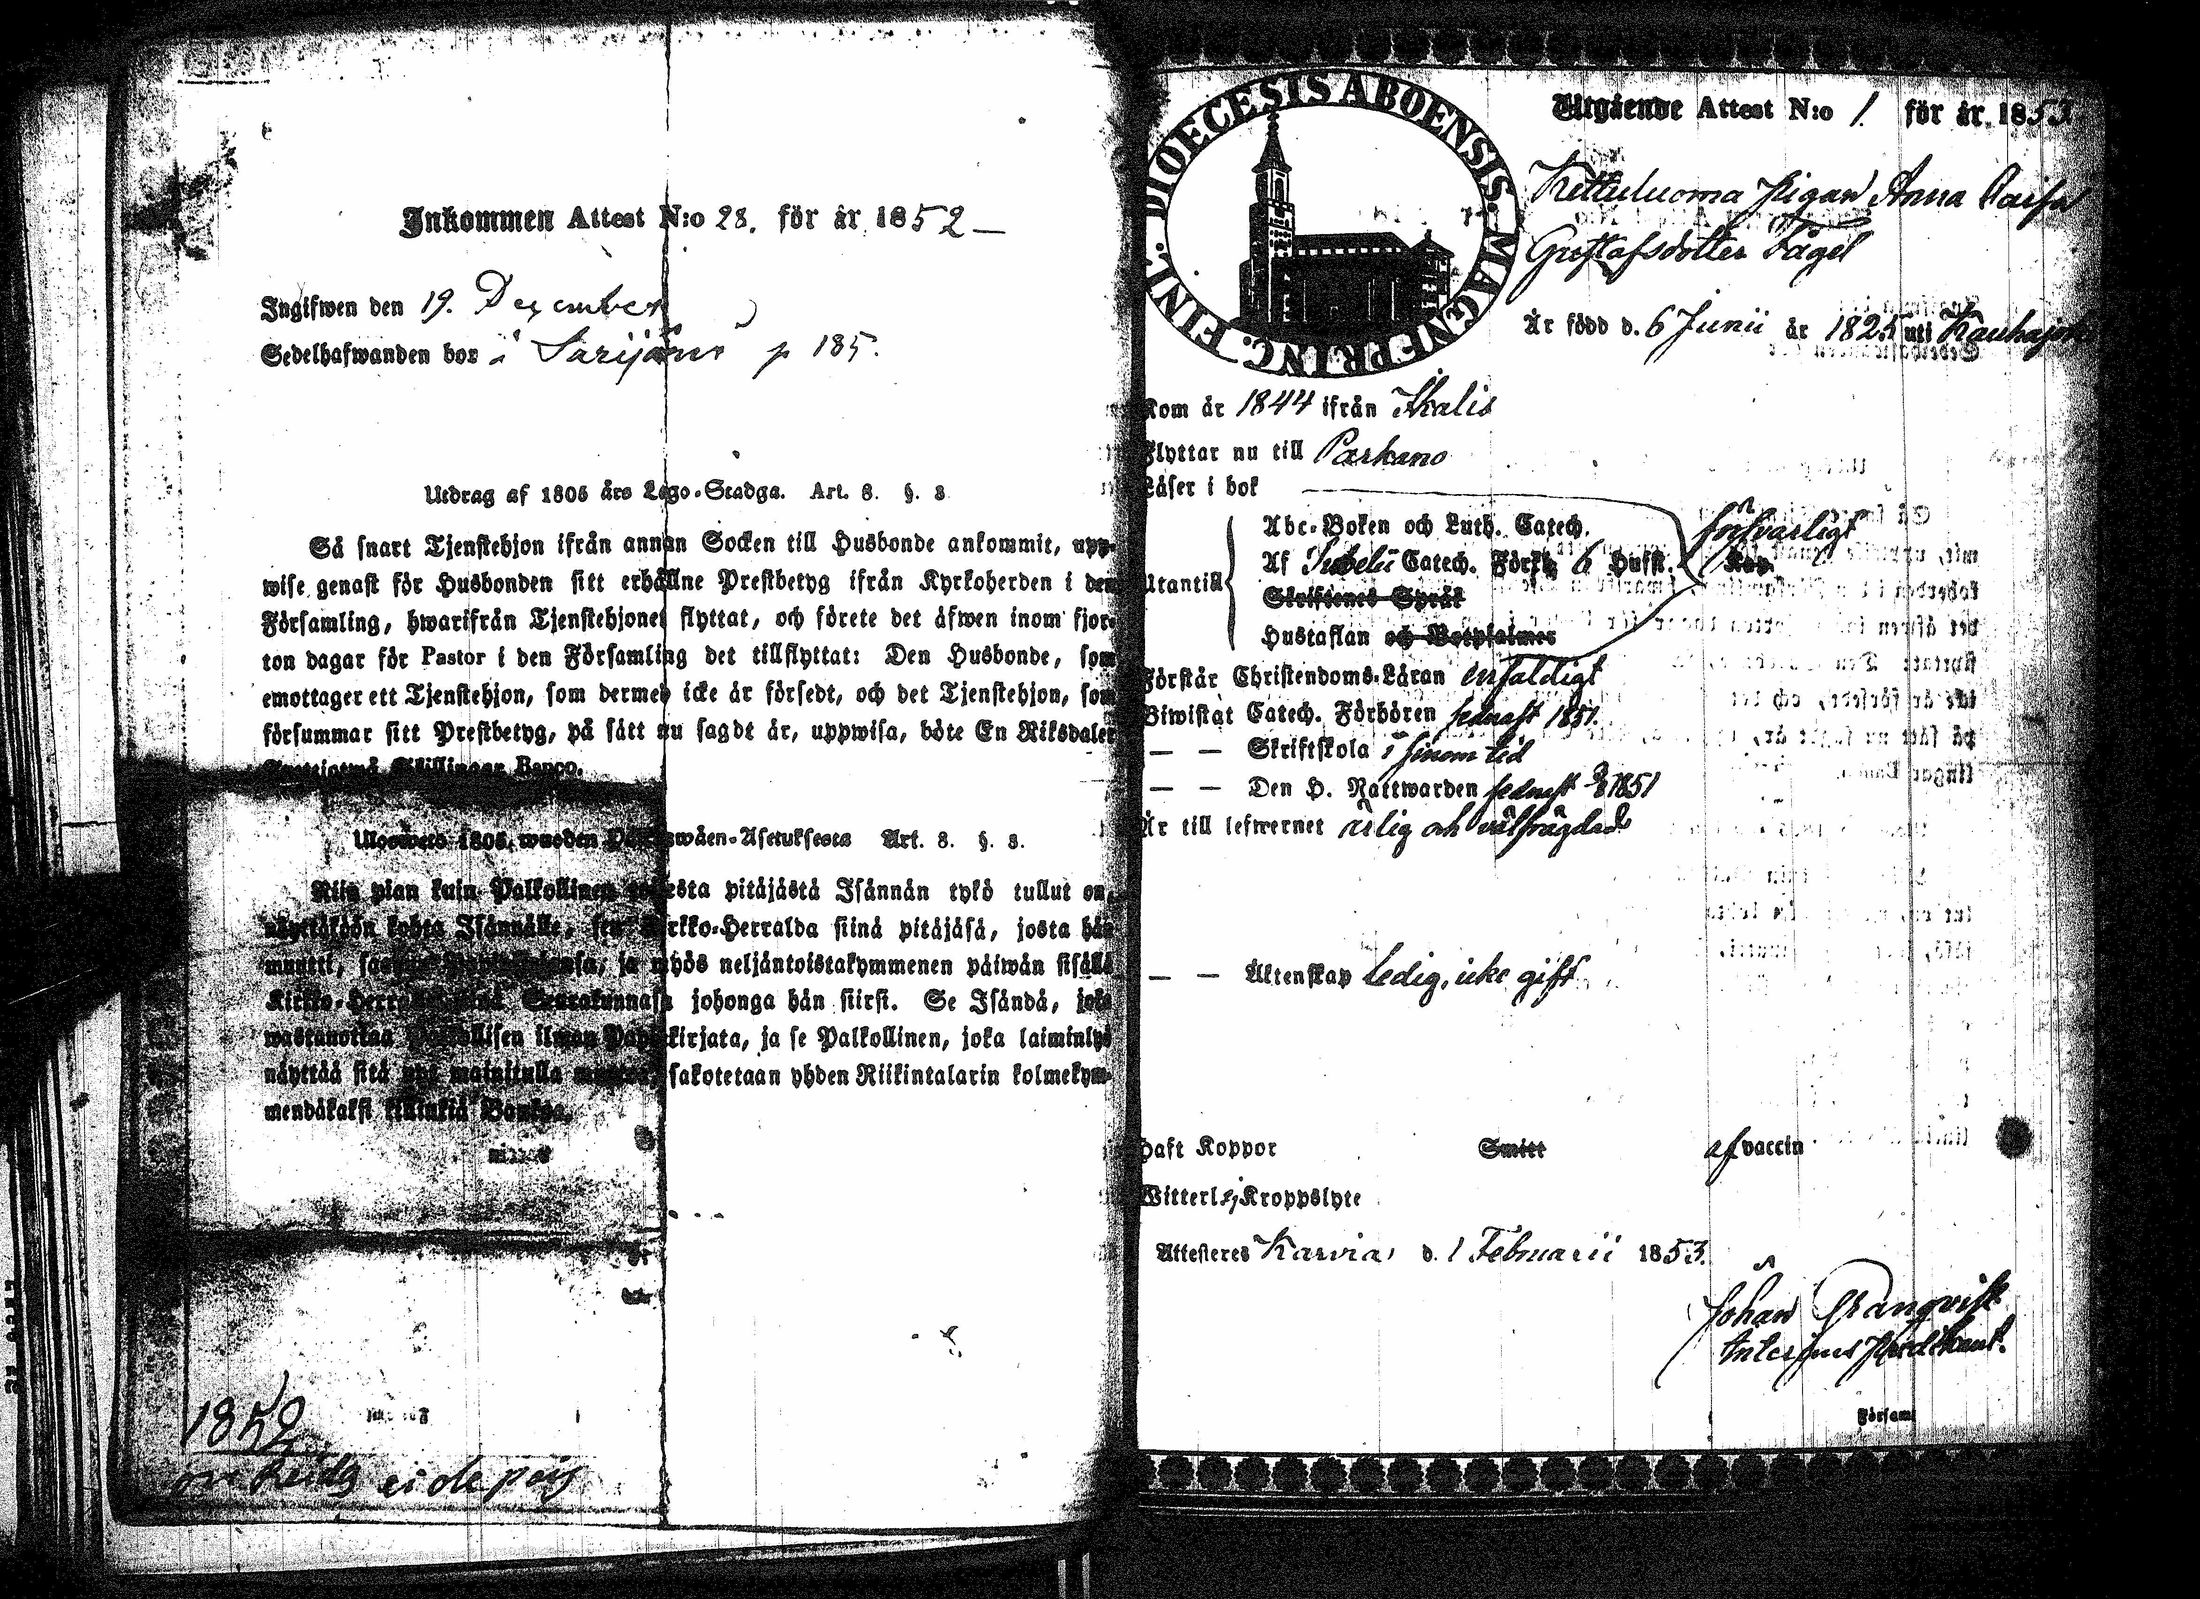 Inkommen Attest N:o 28. för år 1852
Ingifwen den 19. December
Sedelhafwanden bor i p 185.
Utdrag af 1805 års Lego-Stadga. Art. 8. §. 3
Så snart Tjenstehjon ifrån annan Socken till Husbonde ankommit, upp-
wise genast för Husbonden sitt erhållne Prestbetyg ifrån Kyrkoherden i den
Församling, hwarifrån Tjenstehjonet flyttat, och förete det äfwen inom fjor-
ton dagar för Pastor i den Församling det tillflyttat: Den Husbonde, som
emottager ett Tjenstehjon, som dermed icke är försedt, och det Tjenstehjon, som
försummar sitt Prestbetyg, på sätt nu sagdt är, uppwisa, böte En Riksdaler
Skillingar Banco.
1805. wuoden Asetuksesta Art. 8. §. 3.
Niin pian kuin Palkollinen pitäjästä Isännän tykö tullut on,
näyttäköön kohta Isännälle, sen Kirkko-Herralda siinä pitäjäsä, josta hän
muutti, ja myös neljäntoistakymmenen päiwän sisällä
Kirkko-Herralle siinä Seurakunnasa johonga hän siirsi. Se Isändä, joka
wastanottaa Palkollisen ilman Papinkirjata, ja se Palkollinen, joka laiminlyö
näyttää sitä nyt mainitulla sakotetaan yhden Riikintalarin kolmekym-
mendäkaksi killinkiä Bankoa.
1852
DIOECESIS ABOENSIS. MAGNI PRINC. FINL.
Utgående Attest N:o 1. för år 1853
Kettuluoma Pigan Anna Caisa
Gustafsdotter Fågel
Är född d. 6 Junii år 1825 uti Kauhajoki
Kom år 1844 ifrån Ikalis
Flyttar nu till Parkano
Läser i bok
Abc-Boken och Luth. Catech. försvarligt
Utantill Af Svebelii Catech. Förkl. 6 Hufst.
Skriftenes Språk
Hustaflan och Botpsalmer
Förstår Christendoms-Läran enfaldigt
Biwistat Catech. Förhören sednast 1851.
— — Skriftskola i sinom tid
— — Den H. Nattwarden sednast 1851
Är till lefwernet ärlig och välfrägdad
— — Äktenskap Ledig, icke gift
Haft Koppor Smitt af vaccin
Witterl. ej Kroppslyte
Attesteres Karvia d. 1 Februarii 1853.
Johan Granqvist
Interims Predikant.
Församl